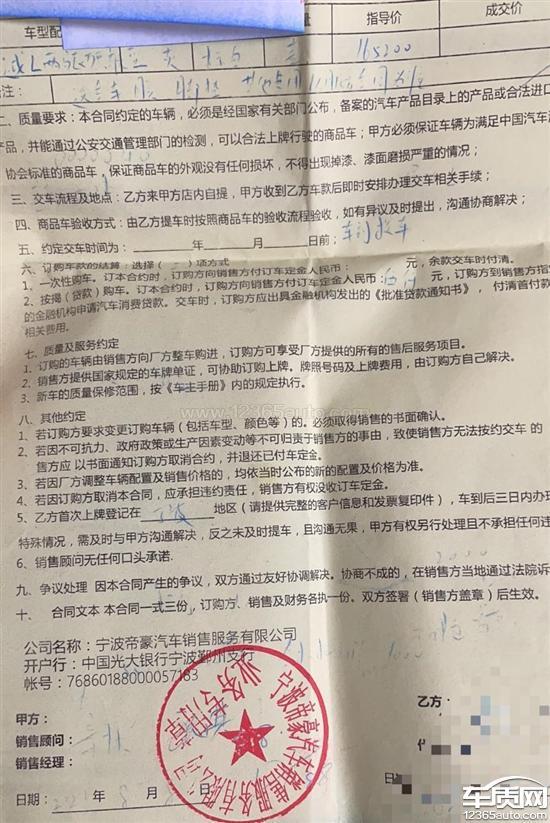 车型配 量 指导价 成交价
165200
注：
二、质量要求：本合同约定的车辆，必须是经国家有关部门公布，备案的汽车产品目录上的产品或合法进口
产品，并能通过公安交通管理部门的检测，可以合法上牌行驶的商品车；甲方必须保证车辆为满足中国汽车
协会标准的商品车，保证商品车的外观没有任何损坏，不得出现掉漆、漆面磨损严重的情况；
三、交车流程及地点：乙方来甲方店内自提，甲方收到乙方车款后即时安排办理交车相关手续；
四、商品车验收方式：由乙方提车时按照商品车的验收流程验收，如有异议及时提出，沟通协商解决；
五、约定交车时间为：____年____月____日前；
六、订购车款的结算：选择（ ）项方式
1、一次性购车。订本合约时，订购方向销售方付订车定金人民币： 元，余款交车时付清。
2、按揭（贷款）购车。订本合约时，订购方向销售方付订车定金人民币： 元，订购方到销售方指定
的金融机构申请汽车消费贷款。交车时，订购方应出具金融机构发出的《批准贷款通知书》，付清首付款
相关费用。
七、质量及服务约定
1、订购的车辆由销售方向厂方整车购进，订购方可享受厂方提供的所有的售后服务项目。
2、销售方提供国家规定的车牌单证，可协助订购上牌。牌照号码及上牌费用，由订购方自己解决。
3、新车的质量保修范围，按《车主手册》内的规定执行。
www.12365auto.com
八、其他约定
1、若订购方要求变更订购车辆（包括车型、颜色等）的。必须取得销售的书面确认。
2、若因不可抗力、政府政策或生产因素变动等不可归责于销售方的事由，致使销售方无法按约交车 的
售方应 以书面通知订购方取消合约，并退还已付车定金。
3、若因厂方调整车辆配置及销售价格的，均依当时公布的新的配置及价格为准。
4、若因订购方取消本合同，应承担违约责任，销售方有权没收订车定金。
5、乙方首次上牌登记在 宁波 地区（请提供完整的客户信息和发票复印件），车到后三日内办理
特殊情况，需及时与甲方沟通解决，反之未及时提车，且沟通无果，甲方有权另行处理且不承担任何违
6、销售顾问无任何口头承诺.
九、争议处理 因本合同产生的争议，双方通过友好协调解决。协商不成的，在销售方当地通过法院诉
十、 合同文本 本合同一式三份，订购方、销售及财务各执一份。双方签署（销售方盖章）后生效。
公司名称：宁波帝豪汽车销售服务有限公司
开户行：中国光大银行宁波鄞州支行
帐号：76860188000057183
宁波帝豪汽车销售服务有限公司
业务专用章
甲方：
乙方：
销售顾问：
代
销售经理：
日期： 年 8 月 日
日期
车质网
12365auto.com